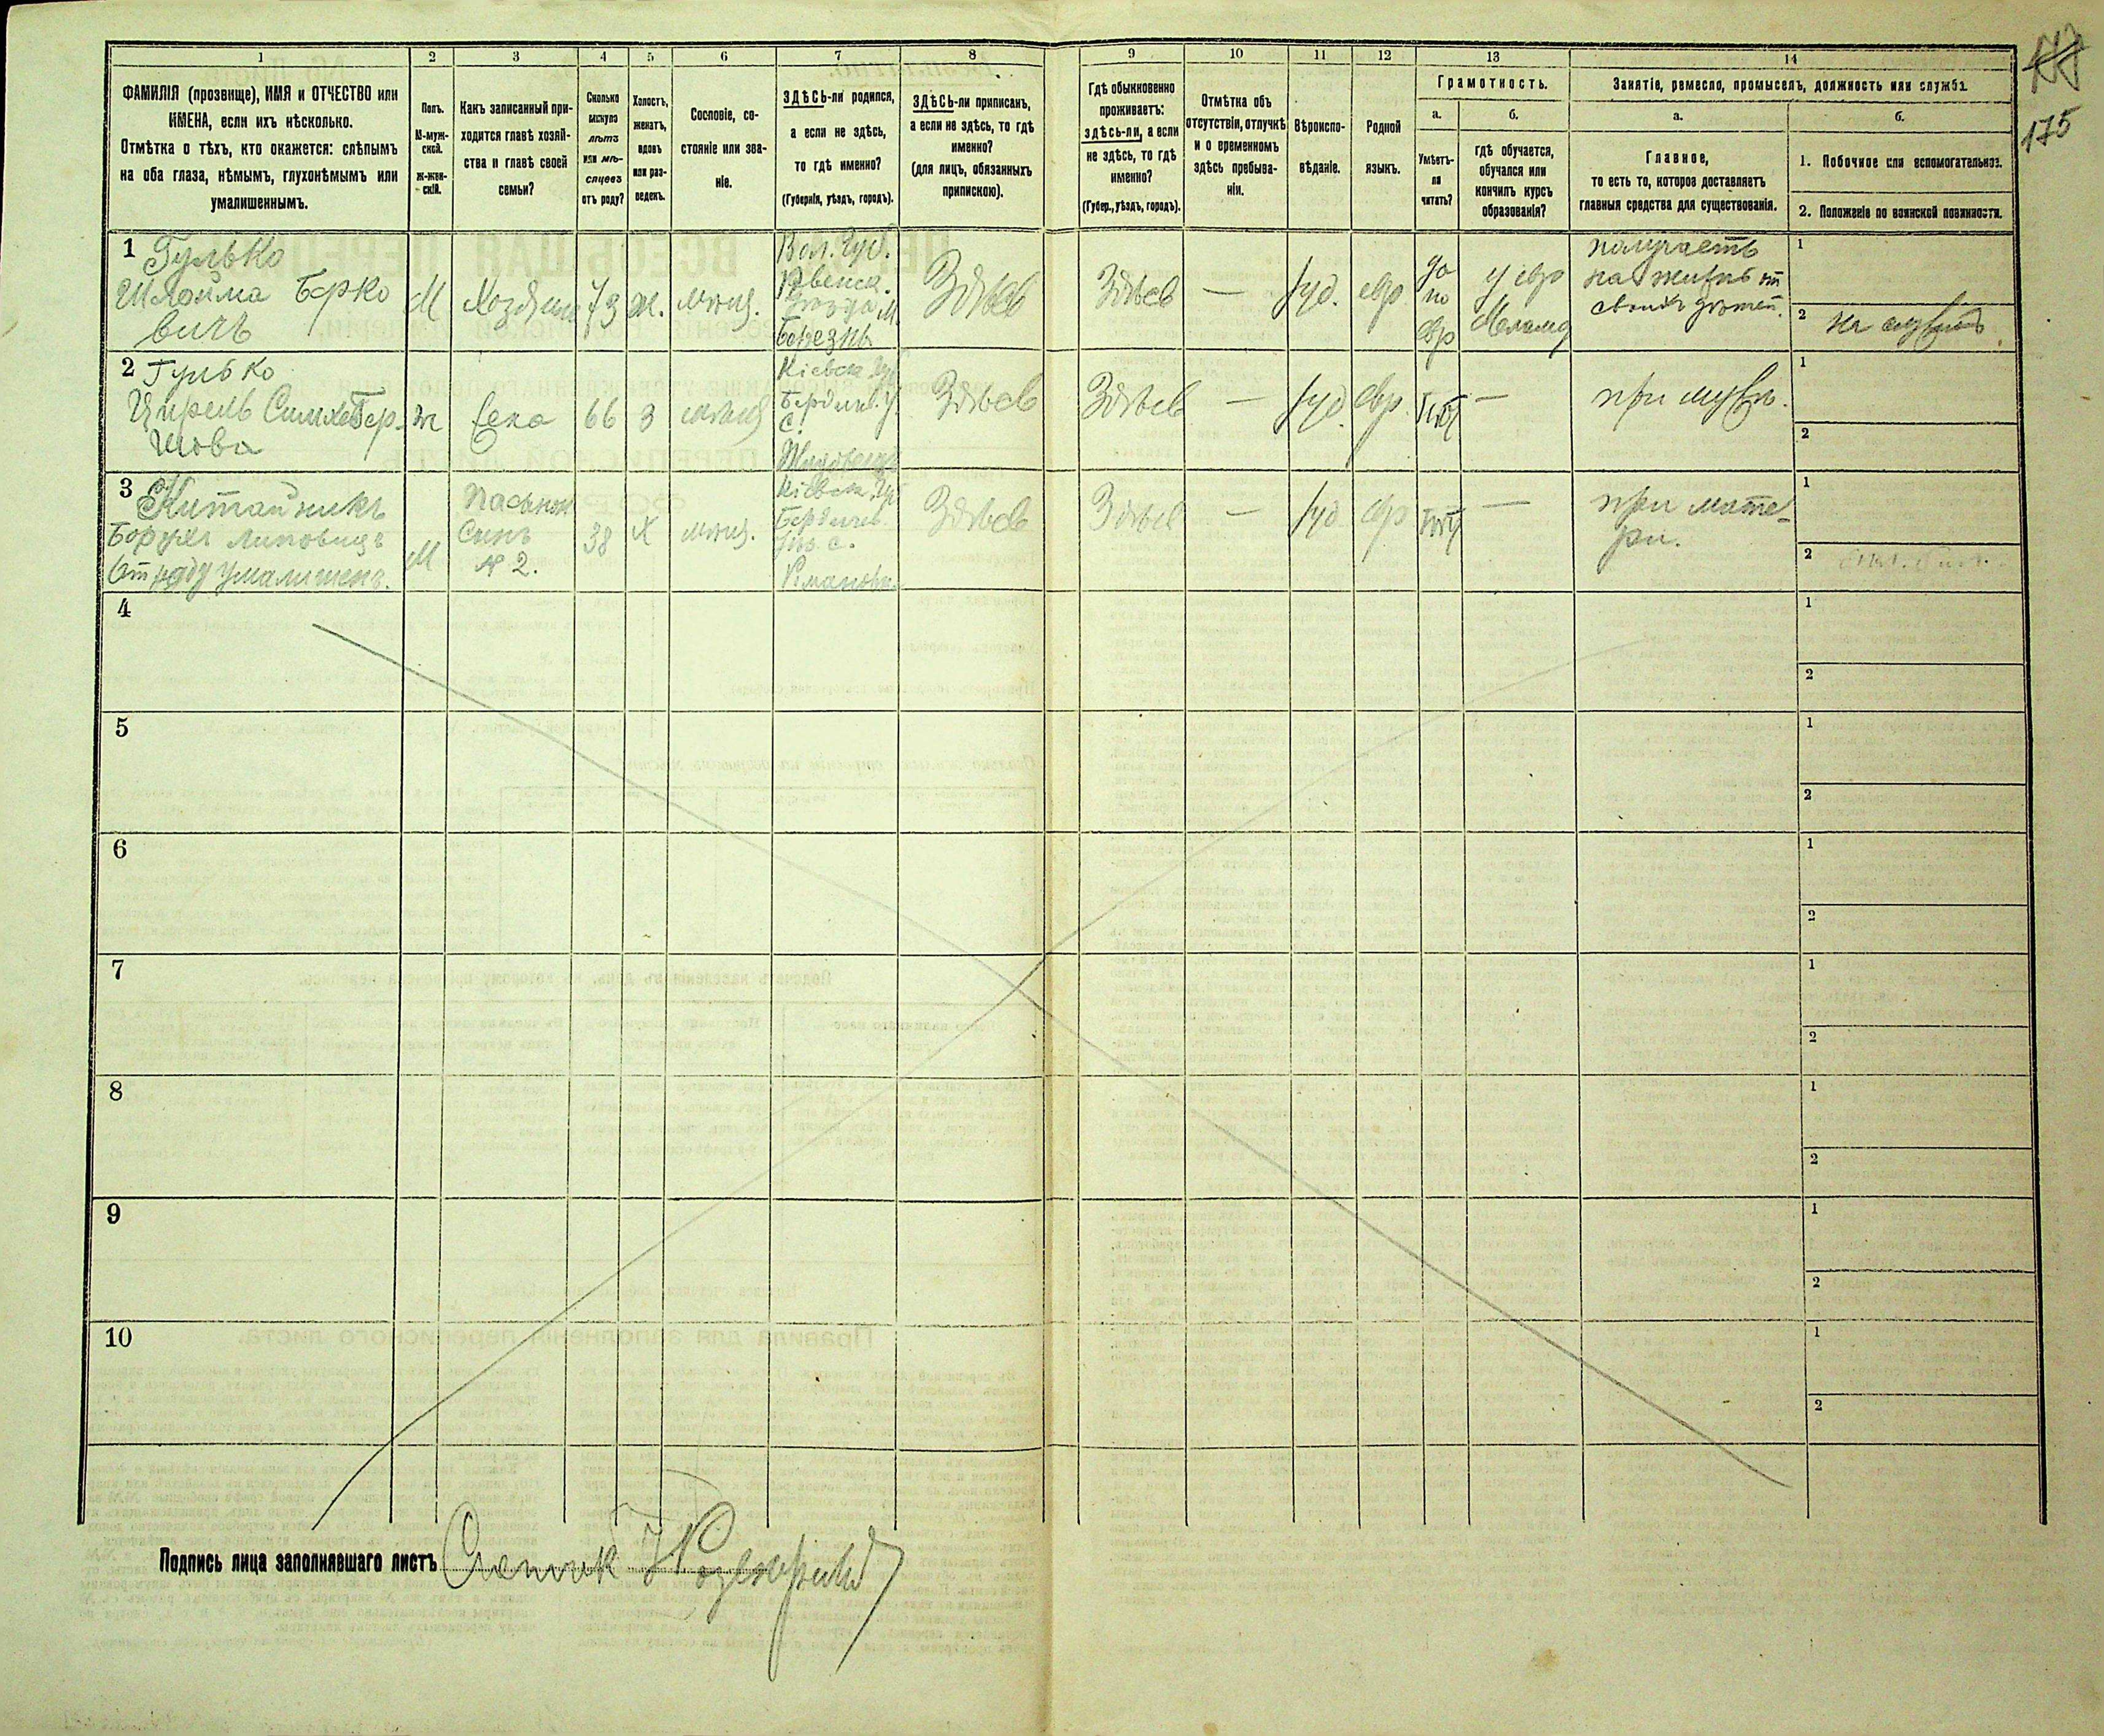 1 2 3 4 5 6 7 8 9 10 11 12 13 14
175
ФАМИЛІЯ (прозвище), ИМЯ и ОТЧЕСТВО или
ИМЕНА, если ихъ нѣсколько.
Отмѣтка о тѣхъ, кто окажется: слѣпымъ
на оба глаза, нѣмымъ, глухонѣмымъ или
умалишеннымъ.
Полъ.
М-муж-
ской.
Ж-жен-
скій.
Какъ записанный при-
ходится главѣ хозяй-
ства и главѣ своей
семьи?
Сколько
минуло
лѣтъ
или мѣ-
сяцевъ
отъ роду?
Холостъ,
женатъ,
вдовъ
или раз-
веденъ.
Сословіе, со-
стояніе или зва-
ніе.
ЗДѢСЬ-ли родился,
а если не здѣсь,
то гдѣ именно?
(Губернія, уѣздъ, городъ).
ЗДѢСЬ-ли приписанъ,
а если не здѣсь, то гдѣ
именно?
(для лицъ, обязанныхъ
припискою).
Гдѣ обыкновенно
проживаетъ:
здѣсь-ли, а если
не здѣсь, то гдѣ
именно?
(Губер., уѣздъ, городъ).
Отмѣтка объ
отсутствіи, отлучкѣ
и о временномъ
здѣсь пребыва-
ніи.
Вѣроиспо-
вѣданіе.
Родной
языкъ.
Грамотность.
а.
Умѣетъ-
ли
читать?
б.
гдѣ обучается,
обучался или
кончилъ курсъ
образованія?
Занятіе, ремесло, промыселъ, должность или служба.
а.
Главное,
то есть то, которое доставляетъ
главныя средства для существованія.
б.
1. Побочное или вспомогательное.
2. Положеніе по воинской повинности.
1 Гулько
Шлойма Берко
вичъ
М
Хозяинъ
73
ж.
мѣщ.
Вол. Губ.
Ровенск.
уѣзда м.
Березны
Здѣсь
Здѣсь
—
Іуд.
евр
да
по
евр
у евр
Меламд
получаетъ
на жизнь от
своихъ дѣтей.
1
2
2 Гулько
Цирель Симха Бер-
шова
ж
Жена
66
З
мѣщ
Кіевск. Губ
Бердич. у.
с.
Здѣсь
Здѣсь
—
Іуд.
Евр.
нѣт
—
при мужѣ.
1
2
3 Китайникъ
Борухъ Липовичъ
От роду умалишен.
М
Пасынок
Сынъ
№ 2.
38
Х
мѣщ.
Кіевск. Губ
Бердичев.
уѣз. с.
Романовк.
Здѣсь
Здѣсь
—
Іуд
евр
нѣт
—
при мате-
ри.
1
2
4
1
2
5
1
2
6
1
2
7
1
2
8
1
2
9
1
2
10
1
2
Подпись лица заполнявшаго листъ Счетчик